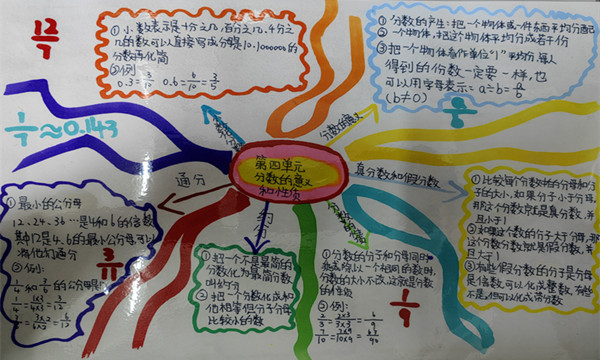 12/7
① 小数表示是十分之几,百分之几,千分之
几的数可以直接写成分母是10.1000000的
分数再化简
②例:
0.3=3/10 0.6=6/10=3/5
① 分数的产生:把一个物体或一件东西平均分西
② 一个物体,把这个物体平均分成若干份
③ 把一个物体看作单位“1”平均分,每人
得到的份数一定要一样,也
可以用字母表示=a÷b=a/b
(b≠0)
1/7≈0.143
分数的意义
第四单元
分数的意义
和性质
通分
真分数和假分数
① 最小的公分母
12、24、36…是4和6的倍数
其中12是4、6的最小公分母,可以
②例:
3/11
① 把一个不是最简的
分数化为最简分数
叫约分
② 把一个分数化成和
它相等但分子分母
比较小的数
① 分数的分子和分母同时
乘或除以一个相同的数时,
分数的大小不改,这就是分数
的性质
②例:
2/3=2×3/3×3=6/9
7/10=7×9/10×9=63/90
1/9
① 比较每个分数时的分母和分
子的大小,如果分子小于分母,
那这个分数就是真分数,并
且小于1
② 如果这个数的分子大于分母,那
这个分数就是假分数,并
且大于1
③ 有些假分数的分子是分母
是倍数,可以化成整数,有些
不是,也可以化成带分数